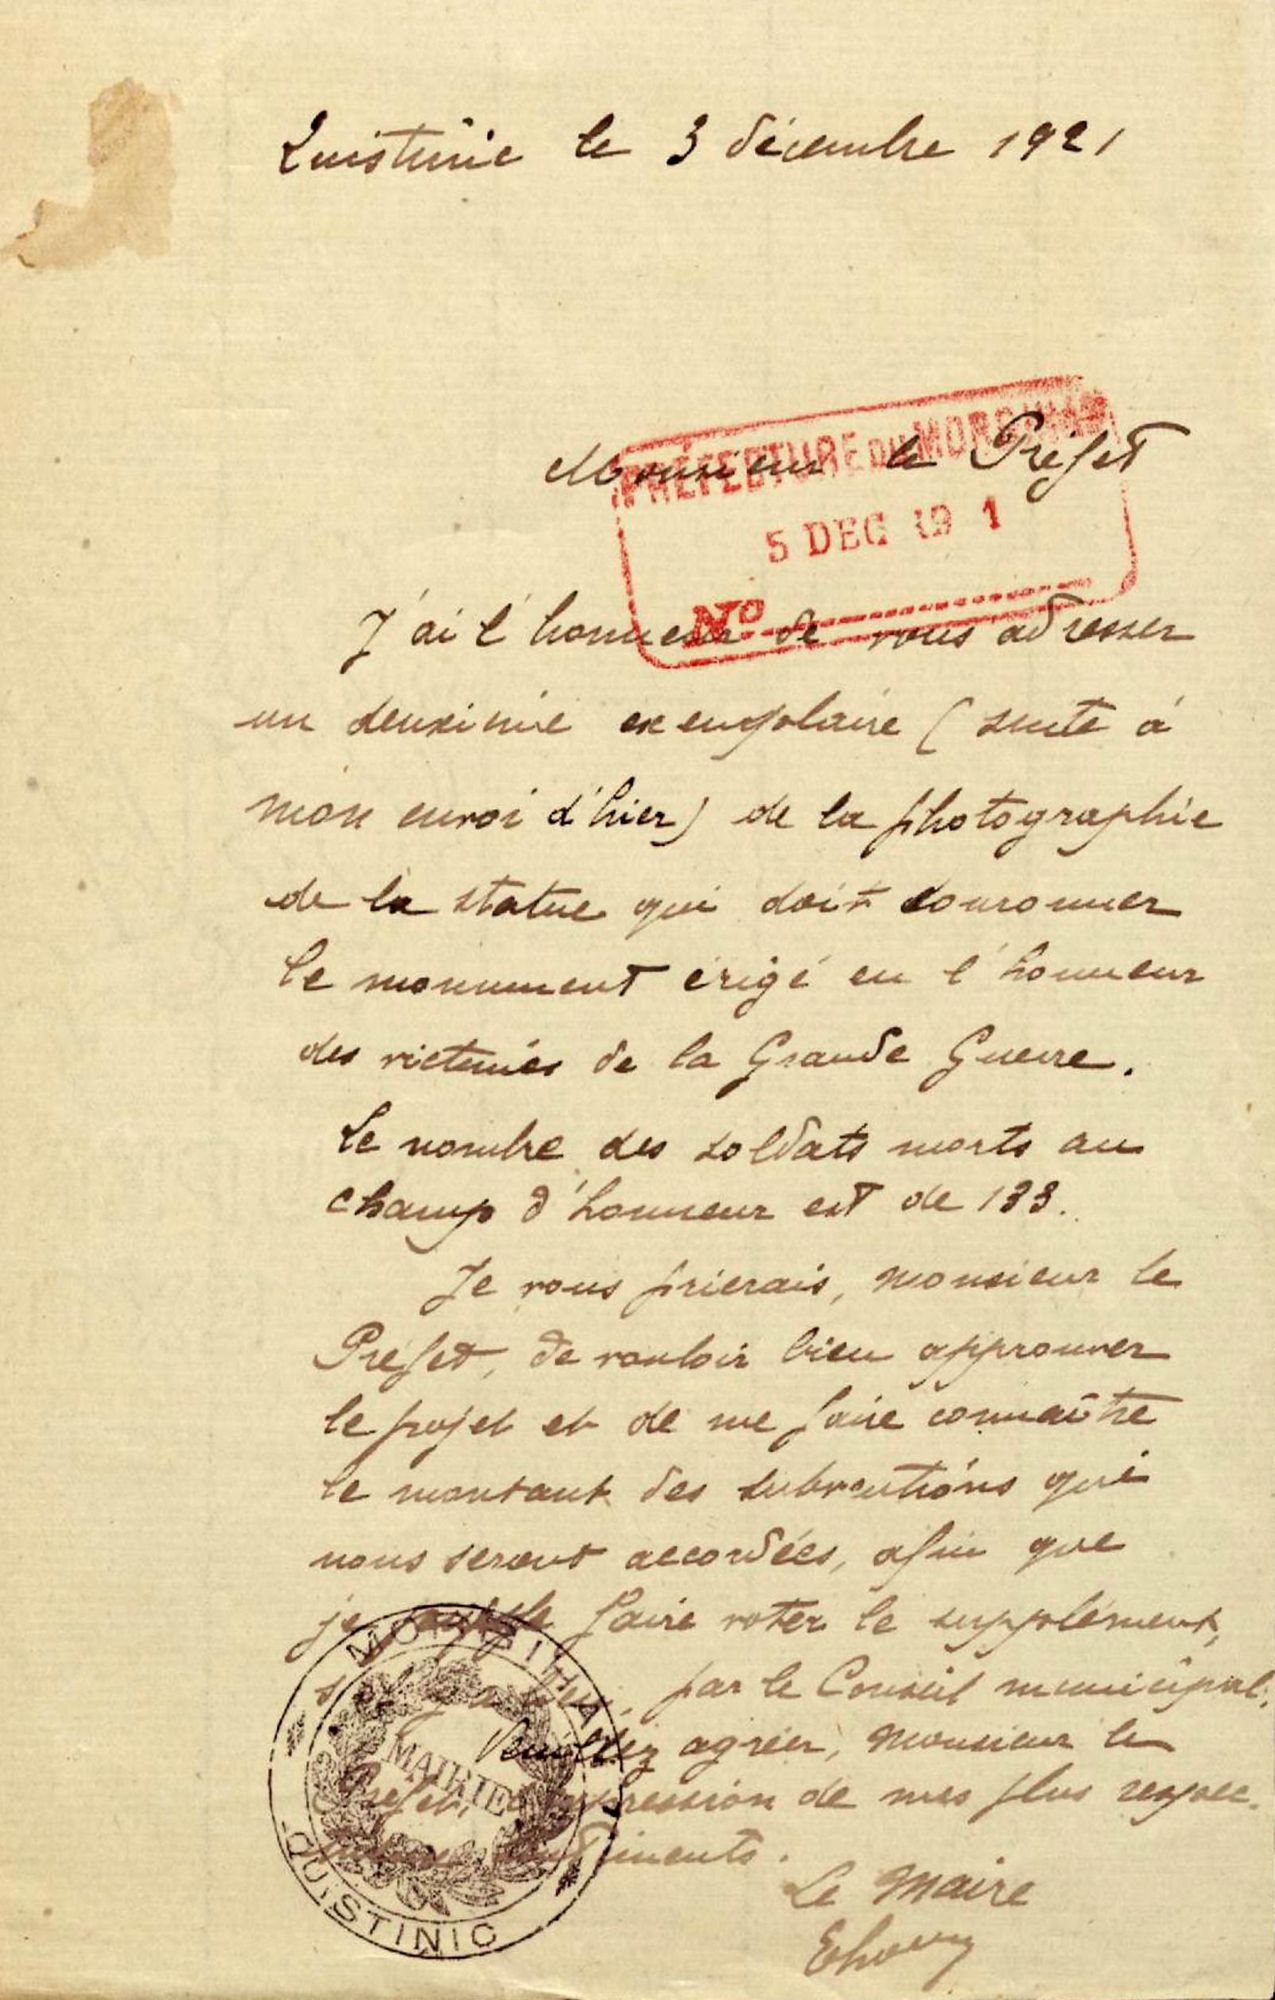 Quistinic le 3 décembre 1921
PRÉFECTURE DU MORBIHAN
Monsieur le Préfet
5 DEC 19 1
No
J'ai l'honneur de vous adresser
un deuxième exemplaire (suite à
mon envoi d'hier) de la photographie
de la statue qui doit couronner
le monument érigé en l'honneur
des victimes de la Grande Guerre.
Le nombre des soldats morts au
champ d'honneur est de 133.
Je vous prierais, Monsieur le
Préfet, de vouloir bien approuver
le projet et de me faire connaître
le montant des subventions qui
nous seront accordées, afin que
je puisse faire voter le supplément,
s'il y a lieu, par le Conseil municipal.
Veuillez agréer, Monsieur le
Préfet, l'expression de mes plus respec-
tueux sentiments.
Le Maire
MORBIHAN
MAIRIE
QUISTINIC